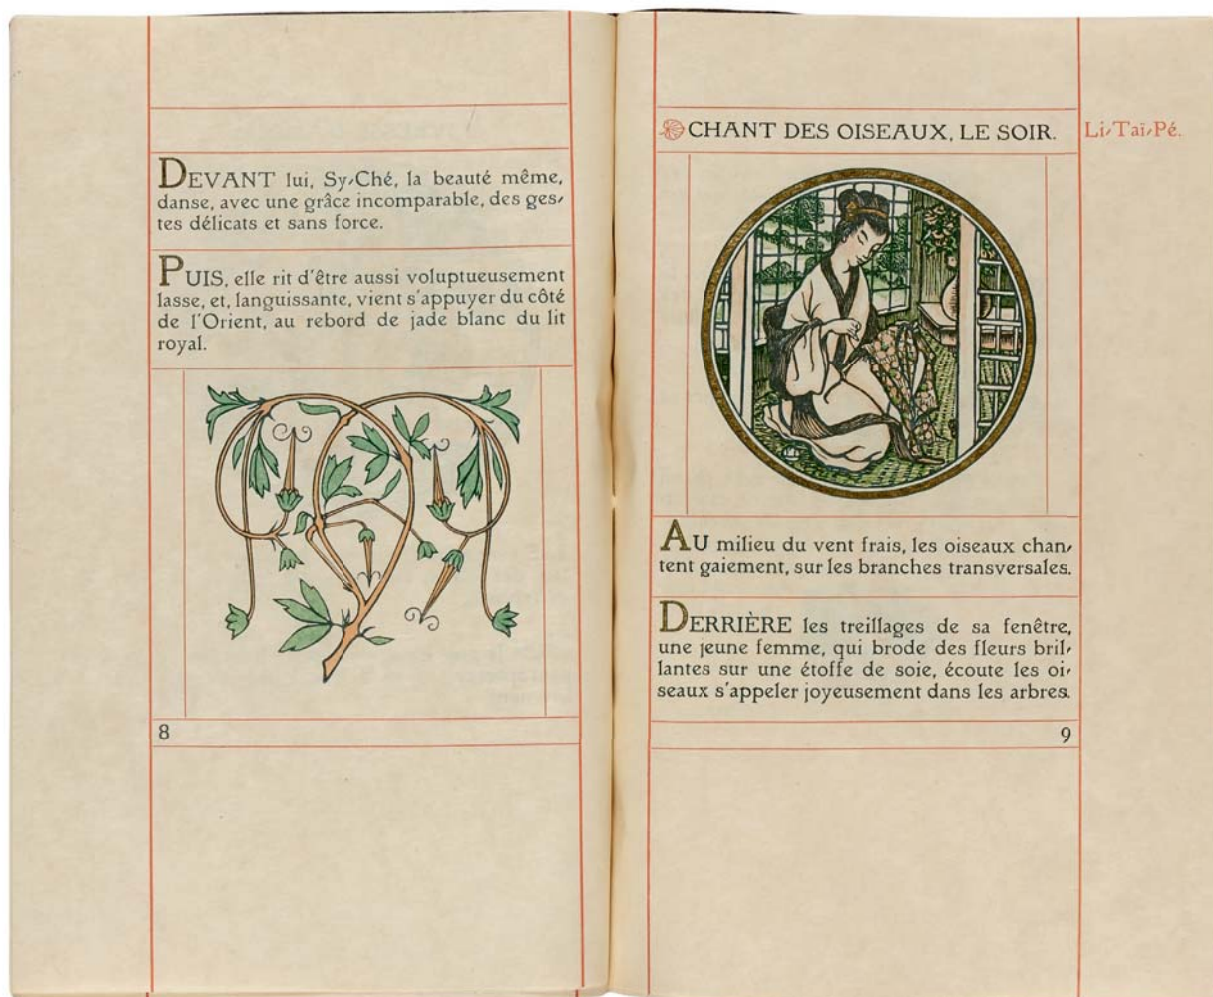 DEVANT lui, Sy-Ché, la beauté même,
danse, avec une grâce incomparable, des ges-
tes délicats et sans force.
PUIS, elle rit d'être aussi voluptueusement
lasse, et, languissante, vient s'appuyer du côté
de l'Orient, au rebord de jade blanc du lit
royal.
8
CHANT DES OISEAUX, LE SOIR.
Li-Taï-Pé.
AU milieu du vent frais, les oiseaux chan-
tent gaiement, sur les branches transversales.
DERRIÈRE les treillages de sa fenêtre,
une jeune femme, qui brode des fleurs bril-
lantes sur une étoffe de soie, écoute les oi-
seaux s'appeler joyeusement dans les arbres.
9